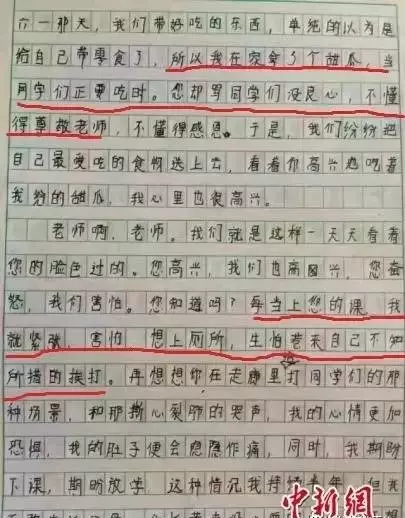 六一那天，我们带好吃的东西，单纯的以为是
给自己带零食了，所以我在家拿了个甜瓜，当
同学们正要吃时。您却骂同学们没良心，不懂
得尊敬老师，不懂得感恩。于是，我们纷纷把
自己最爱吃的食物送上去，看着你高兴地吃着
我给的甜瓜，我心里也很高兴。
老师啊，老师。我们就是这样一天天看着
您的脸色过的。您高兴，我们也高兴，您奋
怒，我们害怕。您知道吗？每当上您的课，我
就紧张，害怕，想上厕所，生怕惹来自己不知
所措的挨打。再想想你在走廊里打同学们的那
种场景，和那撕心裂肺的哭声，我的心情更加
恐惧，我的肚子便会隐隐作痛，同时，我期盼
下课，期盼放学，这种情况我持续半年，但我
中新网